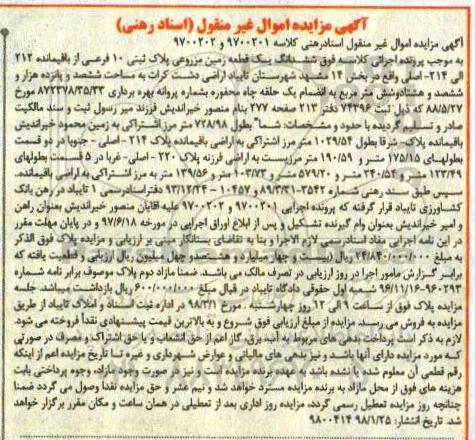 آگهی مزایده اموال غیر منقول (اسناد رهنی)
آگهی مزایده اموال غیر منقول اسنادرهنی کلاسه ۹۷۰۰۲۰۱ و ۹۷۰۰۲۰۲
به موجب پرونده اجرائی کلاسه فوق ششدانگ یک قطعه زمین مزروعی پلاک ثبتی ۱۰ فرعی از باقیمانده ۲۱۲
الی ۲۱۴- اصلی واقع در بخش ۱۴ مشهد شهرستان تایباد اراضی دشت کرات به مساحت ششصد و پانزده هزار و
ششصد و هشتادوشش متر مربع به انضمام یک حلقه چاه محفوره بشماره پروانه بهره برداری ۸۷۲۳۷۸/۳۵/۳۳ مورخ
۸۸/۵/۲۷ که ذیل ثبت ۷۴۳۹۶ دفتر ۲۱۳ صفحه ۲۷۷ بنام منصور خیراندیش فرزند میر رسول ثبت و سند مالکیت
صادر و تسلیم گردیده با حدود و مشخصات: شما" بطول ۷۲۸/۹۸ متر مرز اشتراکی به زمین محمود خیراندیش
پلاک باقیمانده- شرقا بطول ۱۰۲۹/۵۴ متر مرز اشتراکی به اراضی باقیمانده پلاک ۲۱۴ - اصلی - جنوبا در دو قسمت
بطولهای ۱۷۵/۱۵ متر و ۱۹۰/۵۹ متر مرزیست به اراضی فرزنه پلاک ۲۲۰ - اصلی- غربا در ۵ قسمت بطولهای
۱۲۳/۴۹ متر و ۲۴۰/۵۴ متر و ۵۷۹/۲۰ متر و ۱۰۳/۷۳ متر و ۱۳۹/۵۶ متر به مرز اشتراکی به اراضی باقیمانده.
سپس طبق سند رهنی شماره ۳۵۴۲-۸۹/۳/۳۱ و ۱۰۴۵۷ - ۹۳/۱۲/۲۴ دفتراسنادرسمی ۱ تایباد در رهن بانک
کشاورزی تایباد قرار گرفته که پرونده اجرایی ۹۷۰۰۲۰۱ و ۹۷۰۰۲۰۲ علیه آقایان منصور خیراندیش بعنوان راهن
و امیر خیراندیش بعنوان وام گیرنده تشکیل و پس از ابلاغ اوراق اجرایی در مورخه ۹۷/۶/۱۸ و در پایان مهلت مقرر
در این نامه اجرایی مفاد اسنادرسمی لازم الاجرا و بنا به تقاضای بستانکار مبنی بر ارزیابی و مزایده پلاک فوق الذکر
به مبلغ ۲۴/۸۴۰/۰۰۰/۰۰۰ ریال (بیست و چهار میلیارد و هشتصدو چهل میلیون ریال ارزیابی و قطعیت یافته که
برابر گزارش مامور اجرا در روز ارزیابی در تصرف مالک می باشد. ضمنا مازاد دوم پلاک موصوف برابر نامه شماره
۹۶۰۲۹۳-۹۶/۱۱/۱۶ شعبه اول حقوقی دادگاه تایباد در قبال مبلغ ۶۰۰/۰۰۰/۰۰۰ ریال بازداشت میباشد. جلسه
مزایده پلاک فوق از ساعت ۹ الی ۱۲ روز چهارشنبه . مورخ ۹۸/۳/۱ در اداره ثبت اسناد و املاک تایباد از طریق
مزایده به فروش می رسد. مزایده از مبلغ ارزیابی فوق شروع و به بالاترین قیمت پیشنهادی نقدا فروخته می شود.
لازم به ذکر است پرداخت بدهی های مربوط به آب، برق، گاز اعم از حق انشعاب و یا حق اشتراک و مصرف در صورتی
که مورد مزایده دارای آنها باشد و نیز بدهی های مالیاتی و عوارض شهرداری و غیره تا تاریخ مزایده اعم از اینکه
رقم قطعی آن معلوم شده یا نشده باشد به عهده برنده مزایده است و نیز در صورت وجود مازاد، وجوه پرداختی بابت
هزینه های فوق از محل مازاد به برنده مزایده مسترد خواهد شد و نیم عشر و حق مزایده نقدا وصول می گردد ضمنا
چنانچه روز مزایده تعطیل رسمی گردد، مزایده روز اداری بعد از تعطیلی در همان ساعت و مکان مقرر برگزار خواهد
شد. تاریخ انتشار: ۹۸/۱/۲۵ ۹۸۰۰۴۱۴